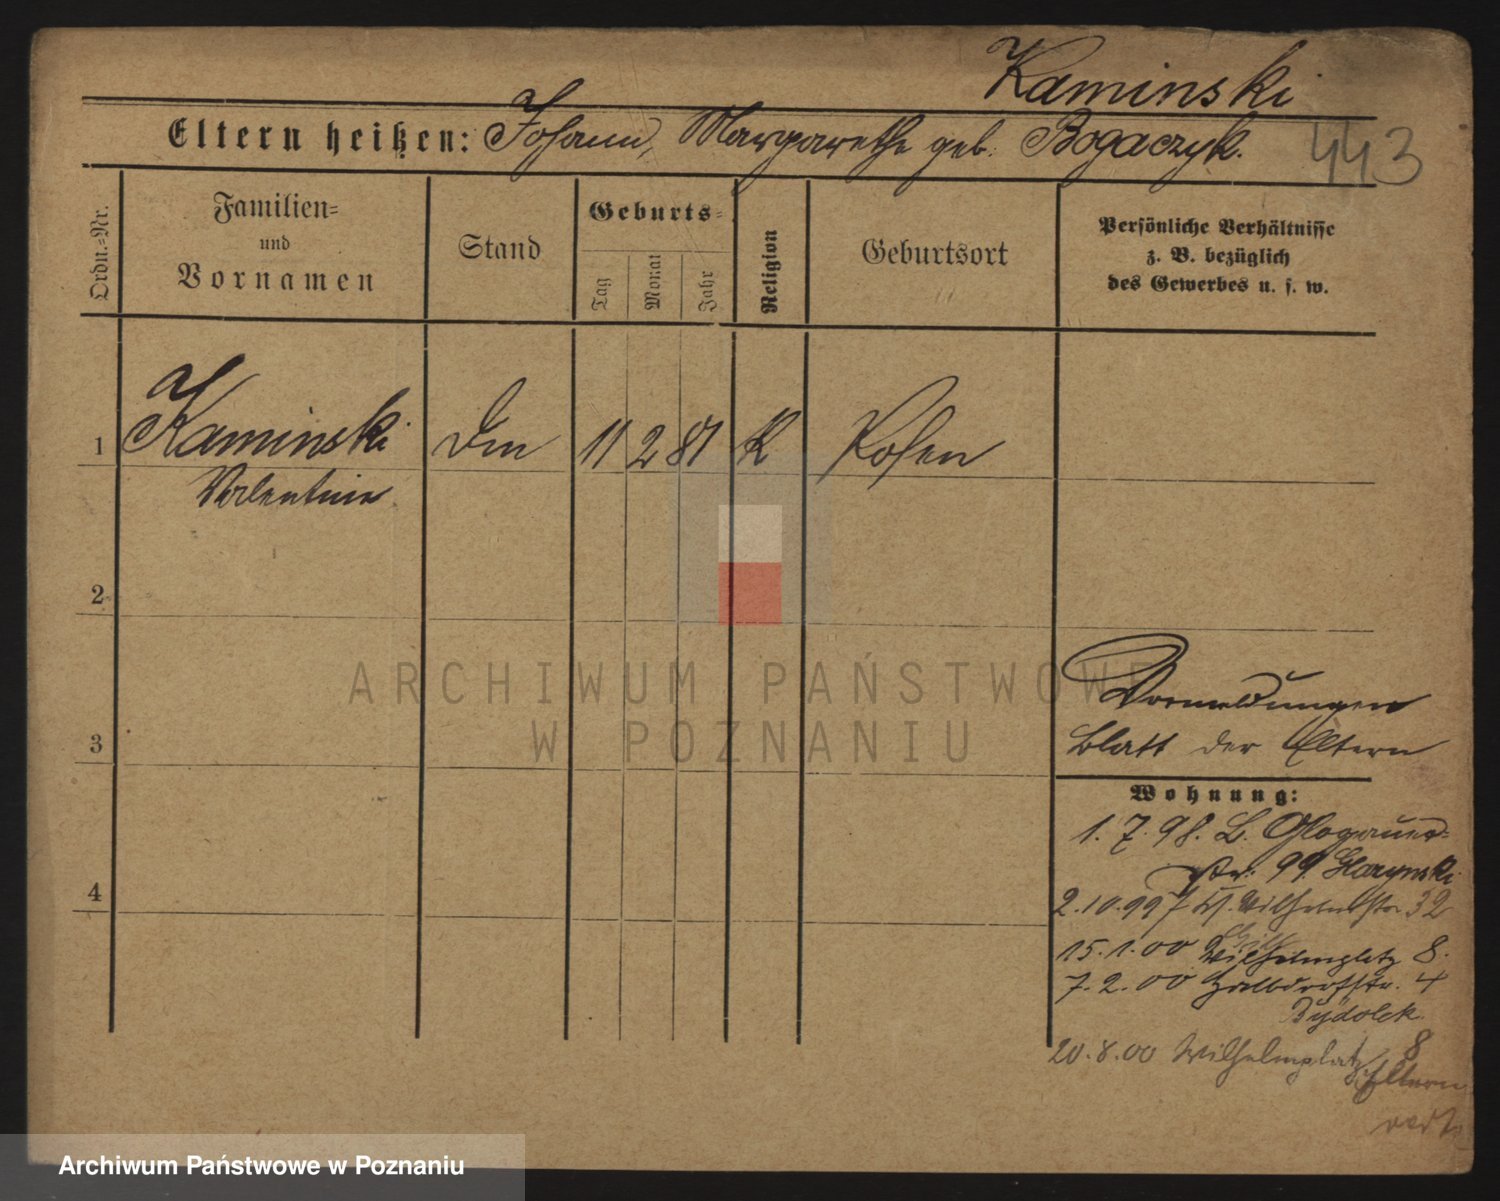 Kaminski
Eltern heißen: Johann, Margarethe geb. Bogaczyk.
443
Ordn.=Nr.
Familien=
und
Vornamen
Stand
Geburts=
Tag
Monat
Jahr
Religion
Geburtsort
Persönliche Verhältnisse
z. B. bezüglich
des Gewerbes u. s. w.
1 Kaminski 11 2 81 K Posen
Valentin
2
3
4
Vormeldungen
Blatt der Eltern
Wohnung:
1. 7. 98. L. Glogauer=
str. 99
2.10.99 Wilhelmstr. 32
15.1.00 Wilhelmplatz 8.
7.2.00 Halbdorfstr. 4
20.8.00 Wilhelmplatz 8
Eltern
ARCHIWUM PAŃSTWOWE
W POZNANIU
Archiwum Państwowe w Poznaniu